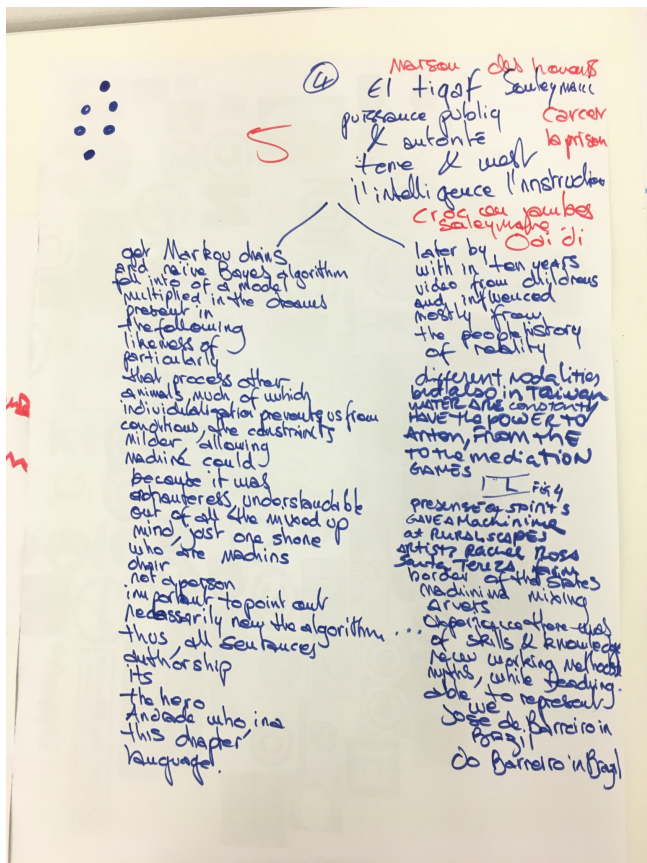 4
Maison des
El tigaf Souleymane
puissance publiq carcer
& autorité la prison
5
terre & west
l'intelligence l'instruction
croc en jambes
Souleymane
Odi di
get Markov chains
and naive Bayes algorithm
fall into of a model
multiplied in the dreams
present in
the following
likeness of
particularly
that process other
animals, much of which
individualization prevents us from
conditions, are constraints
milder, allowing
machine could
because it was
understandable
out of all the mixed up
mind, just one shone
who, are machins
chair
not a person
important to point out
necessarily new the algorithm ...
thus, all sentences
authorship
its
the hero
Andrade who in a
this chapter,
language.
later by
with in ten years
video from childrens
and influenced
mostly from
the people history
of reality
different modalities
but also in Taiwan
WATER ARE constantly
HAVE the POWER TO
Anton, FROM THE
TO the mediation
GAMES
FIG 4
presense of spirits
GAVE A Machinima
at RURALSCAPES
Artists Rachel Rosa
Santa Tereza farm
border of the states
machinima mixing
experience there was
of skills & knowledge
new working methods
myths, while teaching.
able to represent
we
José de Barreiro in
BRAZIL
do Barreiro in Brazil